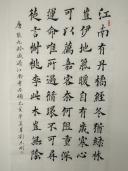 江南有丹橘經冬猶綠林
豈伊地氣暖自有歲寒心
可以薦嘉客奈何阻重深
徒言樹桃李此木豈無陰
唐張九齡感遇江南有丹橘